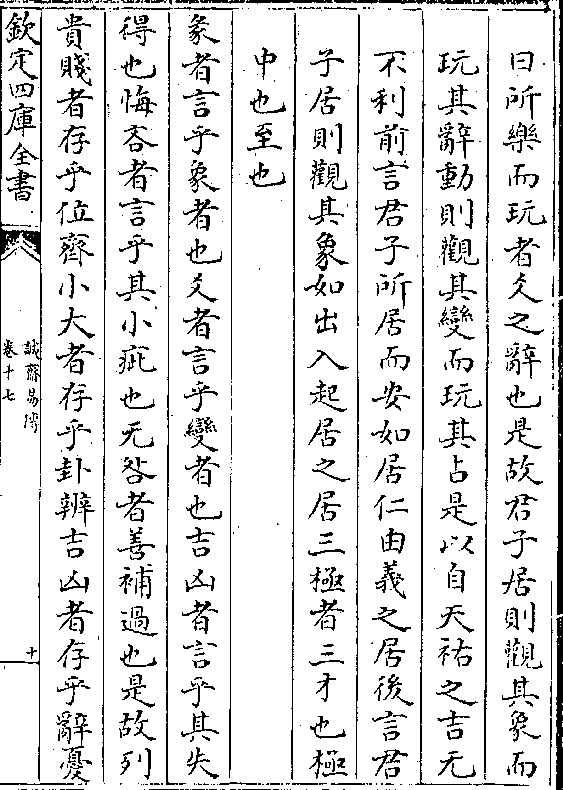 曰所樂而玩者爻之辭也是故君子居則觀其象而
玩其辭動則觀其變而玩其占是以自天祐之吉无
不利前言君子所居而安如居仁由義之居後言君
子居則觀其象如出入起居之居三極者三才也極
中也至也
彖者言乎象者也爻者言乎變者也吉凶者言乎其失
得也悔吝者言乎其小疵也无咎者善補過也是故列
貴賤者存乎位齊小大者存乎卦辨吉凶者存乎辭憂
欽定四庫全書
誠齋易傳
卷十七
十